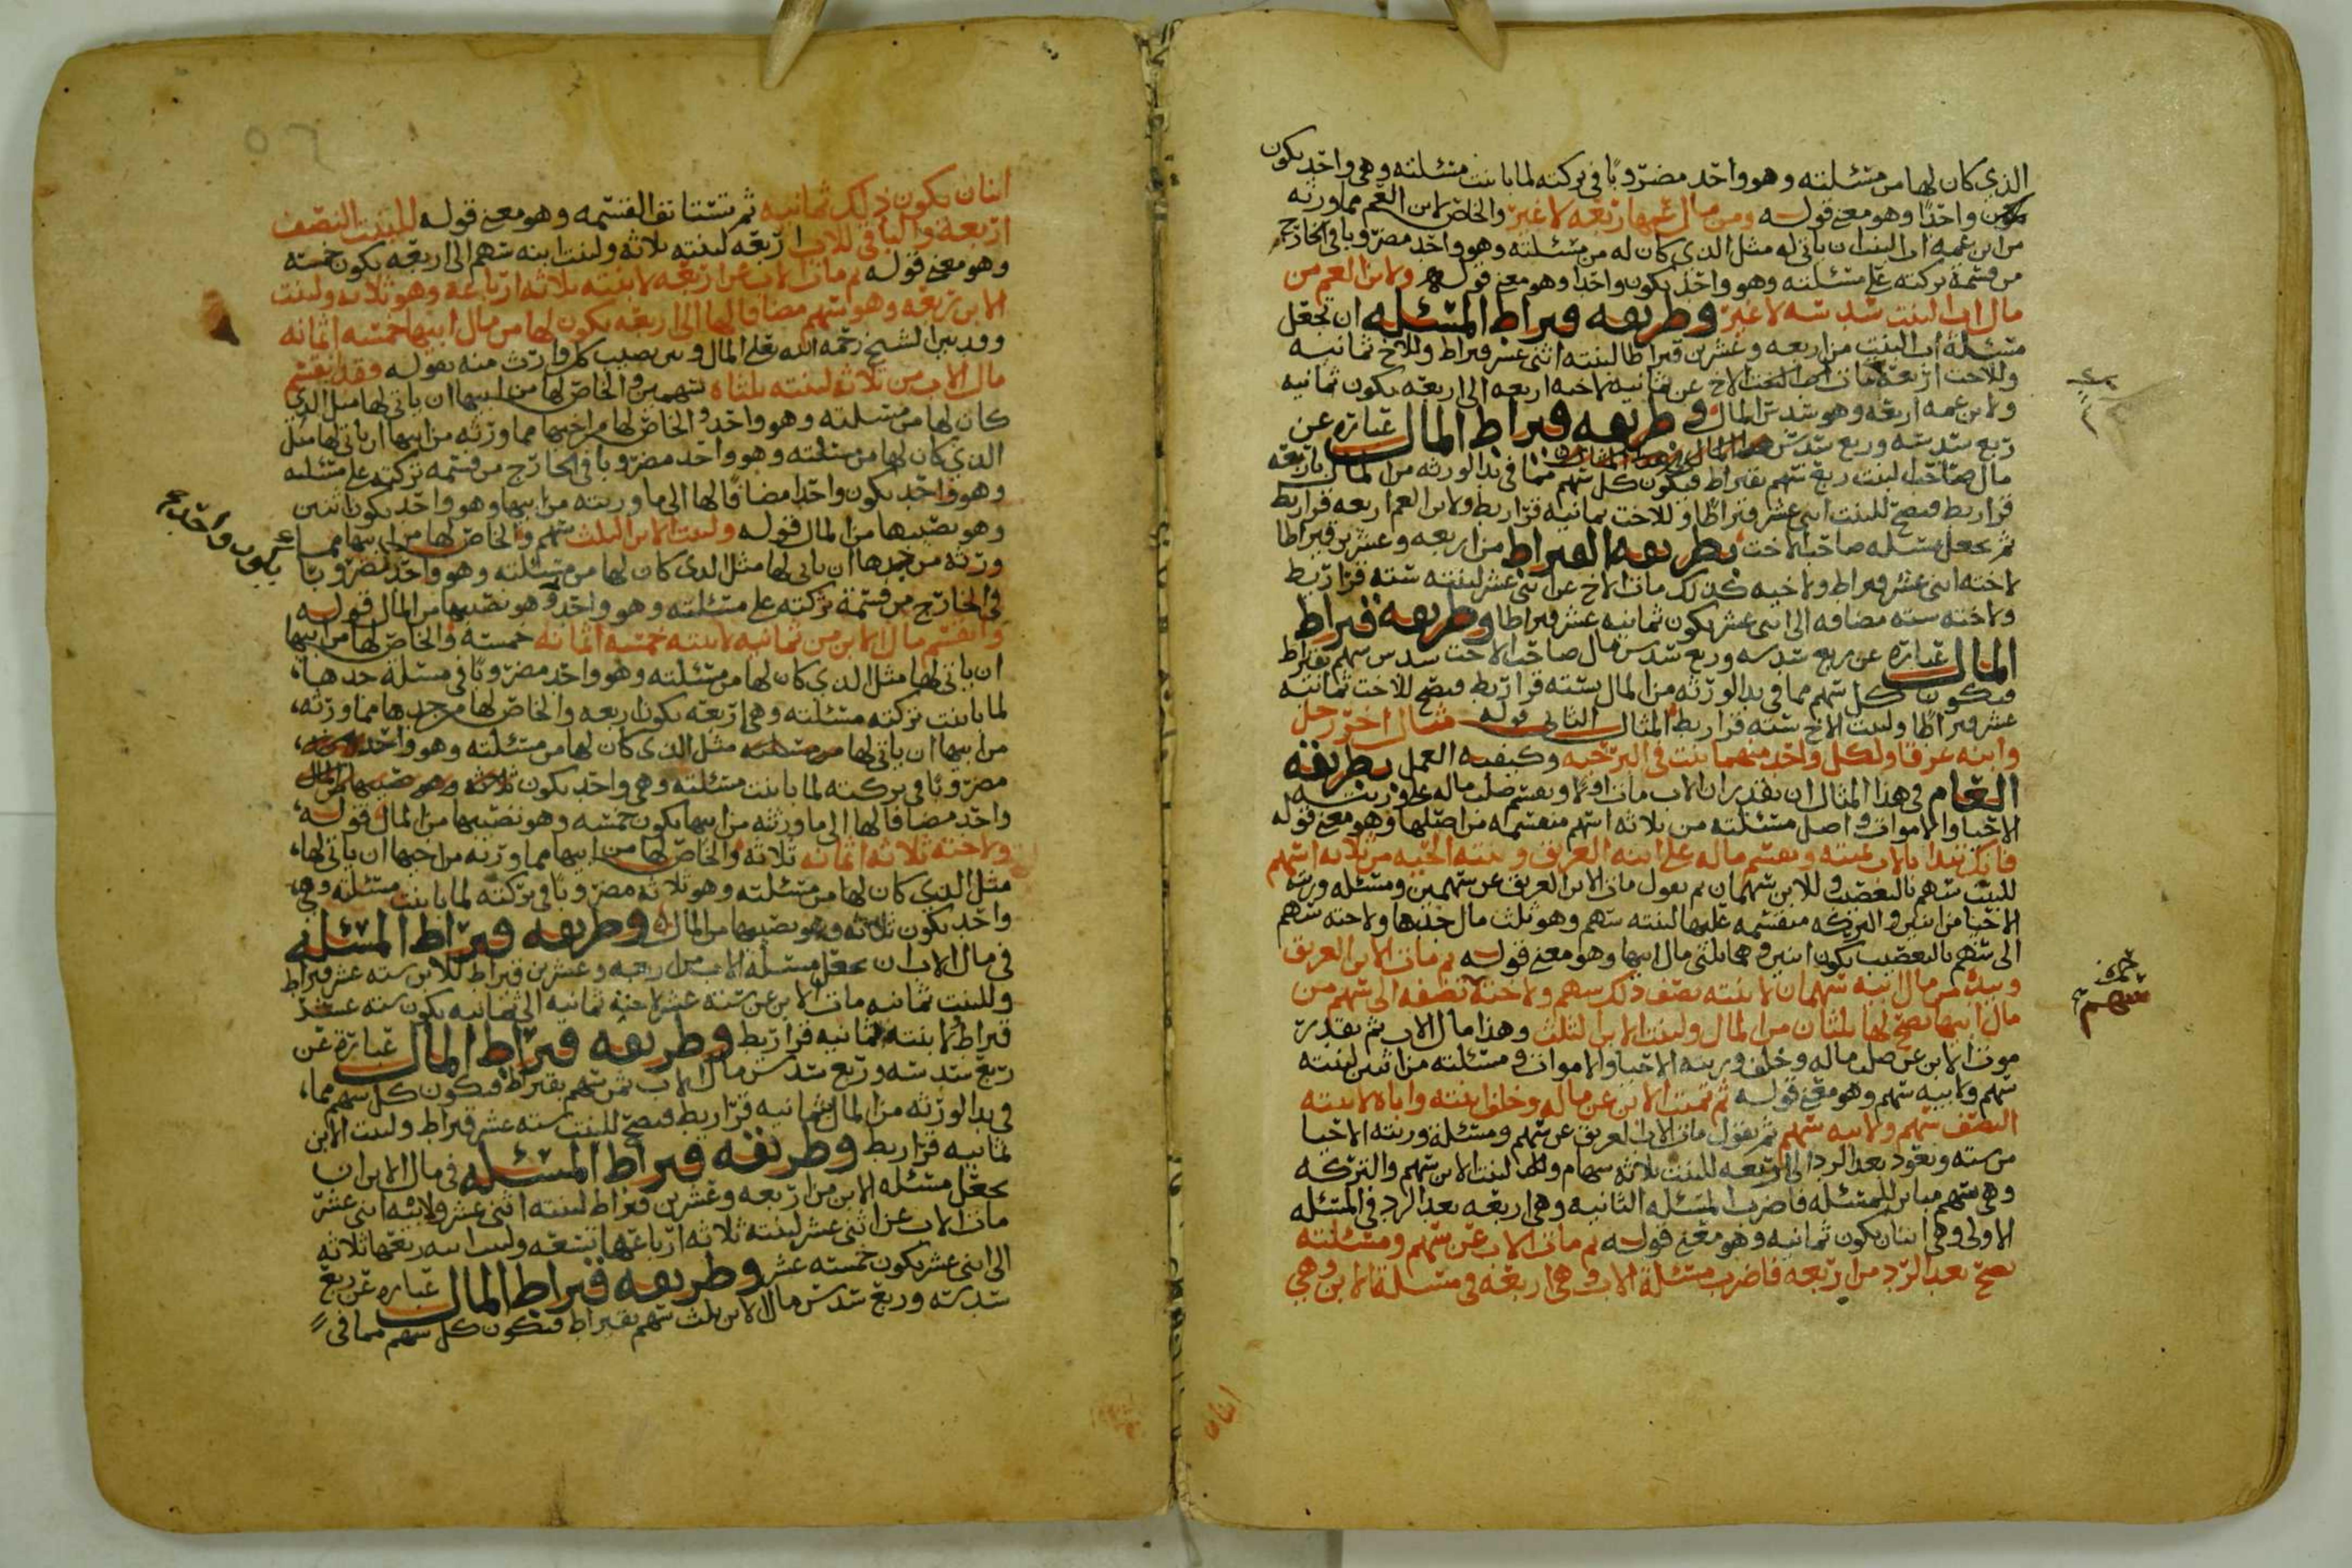 الذي كان لها من مسئلته وهو واحد مضروبا في تركته لما باينت مسئلته وهي واحد يكون
واحدا وهو معنى قوله ومن مال عمها اربعه لا غير والخاص لابن العم مما ورثه
من ابن عمه اب البنت ان ياتي له مثل الذي كان له من مسئلته وهو واحد مضروبا في الخارج
من قسمة تركته على مسئلته وهو واحد يكون واحدا وهو معنى قوله ولابن العم من
مال اب البنت سدسه لا غير وطريقه قيراط المسئله ان تجعل
مسئلة اب البنت من اربعه وعشرين قيراطا لبنته اثنى عشر قيراط وللاخ ثمانيه
وللاخت اربعه مات الاخ عن ثمانيه لاخته اربعه الى اربعه يكون ثمانيه
ولابن عمه اربعه وهو سدس المال وطريقه قيراط المال عباره عن
ربع سدسه وربع سدس
مال صاحب البنت ربع سهم بقيراط فيكون كل سهم مما في يد الورثه من المال باربعه
قراريط فيصح للبنت اثنى عشر قيراطا وللاخت ثمانيه قراريط ولابن العم اربعه قراريط
ثم تجعل مسئله صاحب الاخت بطريقه القيراط من اربعه وعشرين قيراطا
لاخته اثنى عشر قيراط ولاخيه كذلك مات الاخ عن اثنى عشر لبنته سته قراريط
ولاخته سته مضافه الى اثنى عشر يكون ثمانيه عشر قيراطا وطريقه قيراط
المال عباره عن ربع سدسه وربع سدس مال صاحب الاخت سدس سهم بقيراط
فيكون كل سهم مما في يد الورثه من المال بسته قراريط فيصح للاخت ثمانيه
عشر قيراطا ولبنت الاخ سته قراريط المثال الثاني قوله مثال اخر رجل
وابنه غرقا ولكل واحد منهما بنت في البر حيه وكيفيه العمل بطريقه
العام في هذا المثال ان تقدر ان الاب مات اولا وتقسم صلب ماله على ورثته
الاحيا والاموات واصل مسئلته من ثلاثه اسهم منقسمه من اصلها وهو معنى قوله
فانك تبدا بالاب تميته وتقسم ماله على ابنه الغريق وبنته الحيه من ثلاثه اسهم
للبنت سهم بالتعصيب وللابن سهمان ثم يقول مات الابن الغريق عن سهمين ومسئله ورثته
الاحيا من اثنين والتركه منقسمه عليها لبنته سهم وهو ثلث مال جدها ولاخته سهم
الى سهم بالتعصيب يكون اثنين وهما ثلثى مال ابيها وهو معنى قوله ثم مات الابن الغريق
وبيده من مال ابيه سهمان لابنته نصف ذلك سهم ولاخته نصفه الى سهم من
سهم
مال ابيها يصح لها ثلثان من المال ولبنت الابن الثلث وهذا مال الاب ثم تقدر
موت الابن عن صلب ماله وخلف ورثته الاحيا والاموات ومسئلته من اثنين لبنته
سهم ولابيه سهم وهو معنى قوله ثم تميت الابن عن ماله وخلف ابنته واباه لابنته
النصف سهم ولابيه سهم ثم يقول مات الاب الغريق عن سهم ومسئلة ورثته الاحيا
من سته وتعود بعد الرد الى اربعه للبنت ثلاثه سهام ولها لبنت الابن سهم والتركه
وهي سهم مباين للمسئله فاضرب المسئله الثانيه وهي اربعه بعد الرد في المسئله
الاولى وهي اثنان يكون ثمانيه وهو معنى قوله ثم مات الاب عن سهم ومسئلته
تصح بعد الرد من اربعه فاضرب مسئلة الاب وهي اربعه في مسئلة الابن وهي
اثنان
اثنان يكون ذلك ثمانيه ثم تستانف القسمه وهو معنى قوله للبنت النصف
اربعه والباقي للاب اربعه لبنته ثلاثه ولبنت ابنه سهم الى اربعه يكون خمسه
وهو معنى قوله ثم مات الاب عن اربعه لابنته ثلاثه ارباعه وهو ثلاثه ولبنت
الابن ربعه وهو سهم مضافا لها الى اربعه يكون لها من مال ابيها خمسه اثمانه
وقد بين الشيخ رحمه الله تعلى المال وبين نصيب كل وارث منه بقوله فقد انقسم
مال الاب من ثلاثه لبنته ثلثاه سهمين والخاص لها من ابيها ان ياتي لها مثل الذي
كان لها من مسئلته وهو واحد والخاص لها من اخيها مما ورثه من ابيها ان ياتي لها مثل
الذي كان لها من مسئلته وهو واحد مضروبا في الخارج من قسمه تركته على مسئلته
وهو واحد يكون واحدا مضافا لها الى ما ورثته من ابيها وهو واحد يكون اثنين
وهو نصيبها من المال قوله ولبنت الابن الثلث سهم والخاص لها من ابيها مما
ورثه من جدها ان ياتي لها مثل الذي كان لها من مسئلته وهو واحد مضروبا
يكون واحدا
في الخارج من قسمة تركته على مسئلته وهو واحد وهو نصيبها من المال قوله
وانقسم مال الابن من ثمانيه لابنته خمسه اثمانه خمسه والخاص لها من ابيها
ان ياتي لها مثل الذي كان لها من مسئلته وهو واحد مضروبا في مسئلة جدها
لما باينت تركته مسئلته وهي اربعه يكون اربعه والخاص لها من جدها مما ورثه
من ابيها ان ياتي لها مثل الذي كان لها من مسئلته وهو واحد
مضروبا في تركته لما باينت مسئلته وهي واحد يكون
واحد مضافا لها الى ما ورثته من ابيها يكون خمسه وهو نصيبها من المال قوله
ولاخته ثلاثه اثمانه ثلاثه والخاص لها من ابيها مما ورثه من اخيها ان ياتي لها
مثل الذي كان لها من مسئلته وهو ثلاثه مضروبا في تركته لما باينت مسئلته وهي
واحد يكون ثلاثه وهو نصيبها من المال وطريقه قيراط المسئله
في مال الاب ان تجعل مسئلة الاب من اربعه وعشرين قيراط للابن سته عشر قيراط
وللبنت ثمانيه مات الابن عن سته عشر لاخته ثمانيه الى ثمانيه يكون سته عشر
قيراط ولابنته ثمانيه قراريط وطريقه قيراط المال عبارة عن
ربع سدسه وربع سدس مال الاب ثمن سهم بقيراط فيكون كل سهم مما
في يد الورثه من المال بثمانيه قراريط فيصح للبنت سته عشر قيراط ولبنت الابن
ثمانيه قراريط وطريقه قيراط المسئله في مال الابن ان
تجعل مسئله الابن من اربعه وعشرين قيراط لبنته اثنى عشر ولابيه اثنى عشر
مات الاب عن اثنى عشر لبنته ثلاثه ارباعها تسعه ولبنت ابنه ربعها ثلاثه
الى اثنى عشر يكون خمسه عشر وطريقه قيراط المال عباره عن ربع
سدسه وربع سدس مال الابن ثلث سهم بقيراط فيكون كل سهم مما في